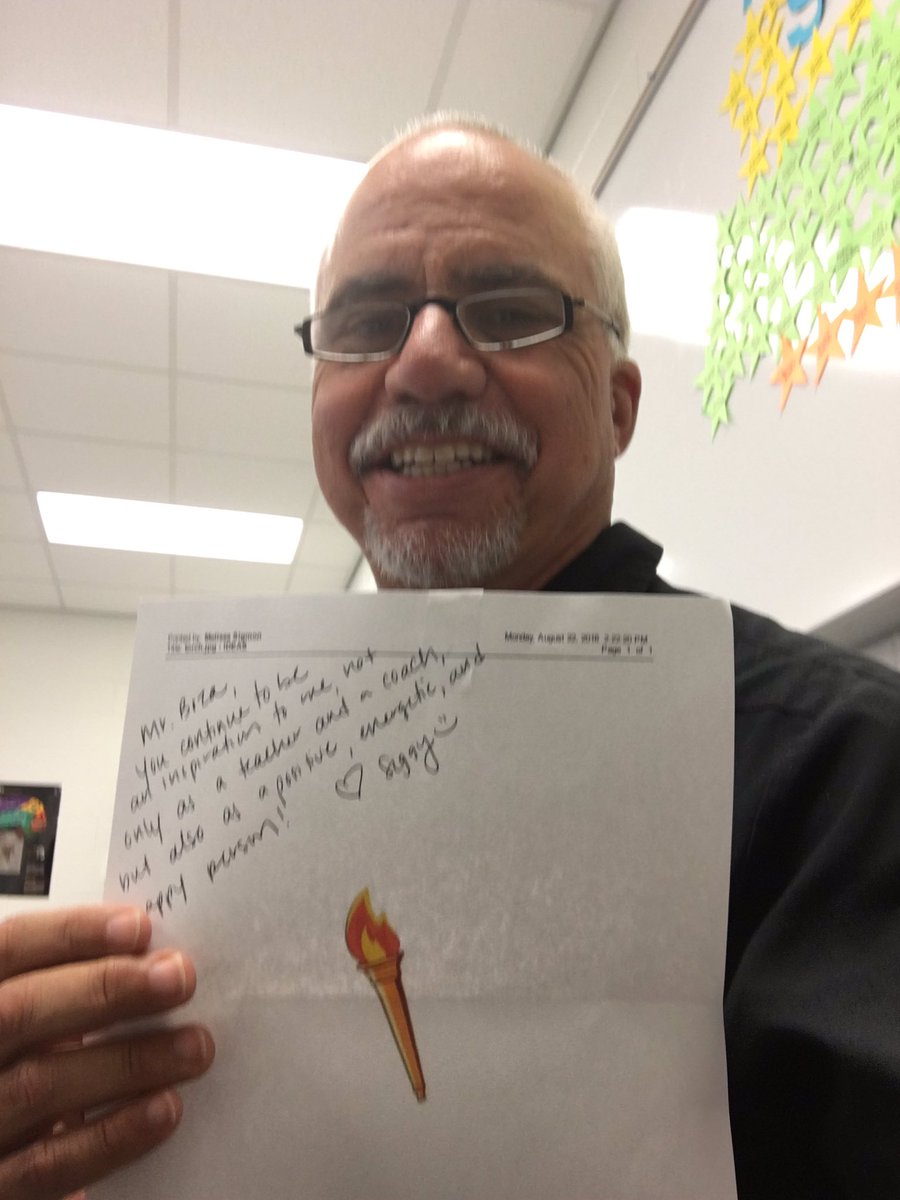 Printed by: Melissa Sigmon
Title: torch.jpg : IDEAS
Monday, August 22, 2016 2:22:20 PM
Page 1 of 1
Mr. Boza,
You continue to be
an inspiration to me, not
only as a teacher and a coach,
but also as a positive, energetic, and
appy person! ♡ Siggy